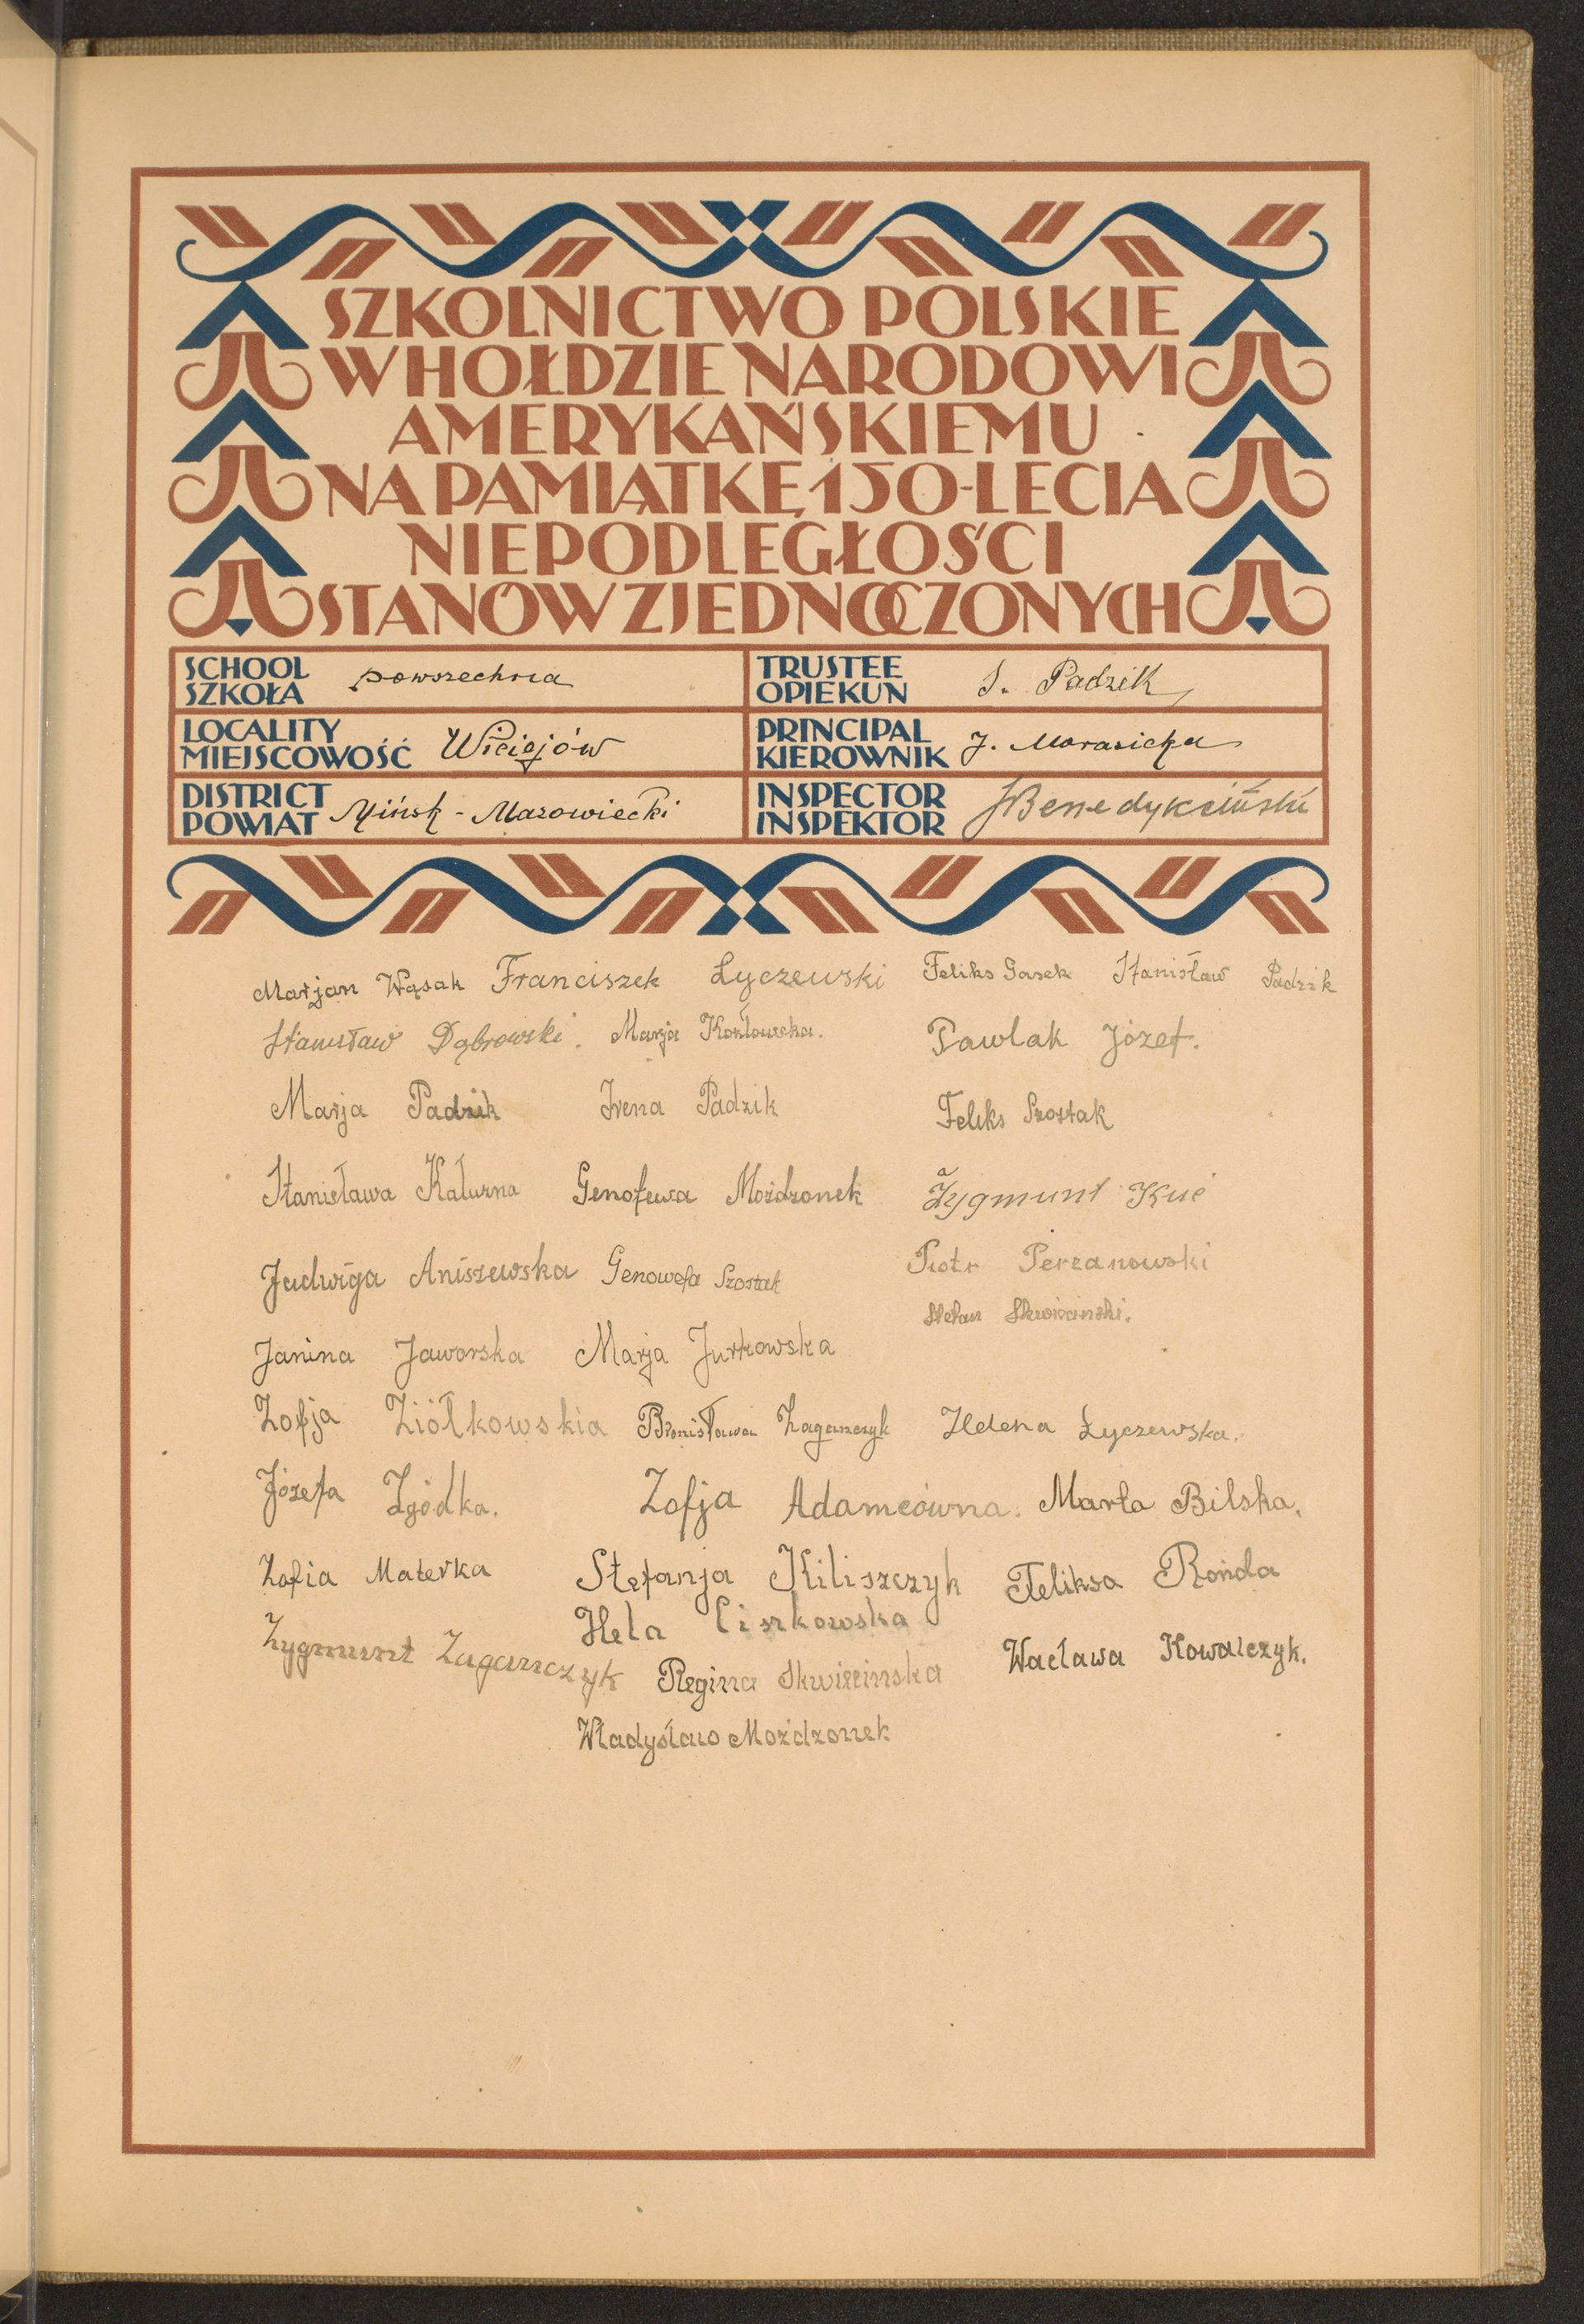 SZKOLNICTWO POLSKIE
W HOŁDZIE NARODOWI
AMERYKAŃSKIEMU
NA PAMIĄTKĘ 150-LECIA
NIEPODLEGŁOŚCI
STANÓW ZJEDNOCZONYCH
SCHOOL SZKOŁA powszechna TRUSTEE OPIEKUN S. Padzik
LOCALITY MIEJSCOWOŚĆ Wiciejów PRINCIPAL KIEROWNIK J.
DISTRICT POWIAT Mińsk - Mazowiecki INSPECTOR INSPEKTOR
Marjan Wąsak Franciszek Łyczewski Feliks Gasek Stanisław Padzik
Stanisław Dąbrowski. Marja Kozłowska. Pawlak Józef.
Marja Padzik Irena Padzik Feliks Szostak
Stanisława Kałuzna Genofewa Moździonek Zygmunt Kuć
Jadwiga Aniszewska Genowefa Szostak Piotr Perzanowski
Stefan Skwiecinski.
Janina Jaworska Marja Jurkowska
Zofja Ziółkowskia Bronisława Zaganczyk Helena Łyczewska.
Józefa Zgódka. Zofja Adamcówna. Marta Bilska.
Zofia Materka Stefanja Kiliszczyk Feliksa Rońda
Hela Ciszkowska
Zygmunt Zaganczyk Regina Skwiecinska Wacława Kowalczyk.
Władysław Moździonek